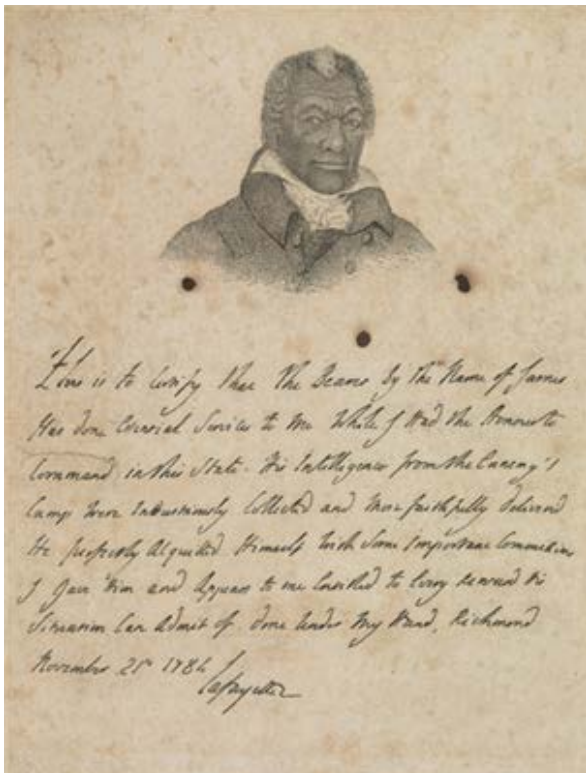 This is to Certify that the Bearer By the Name of James
Has done Essential Services to Me While I Had the Honour to
Command in this State. His Intelligences from the Enemy's
Camp were Industriously Collected and More faithfully deliverd
He perfectly Acquitted Himself with Some Important Commissions
I Gave Him and Appears to me Entitled to Every Reward his
Situation Can Admit of. Done Under My Hand, Richmond
November 21st 1784
Lafayette